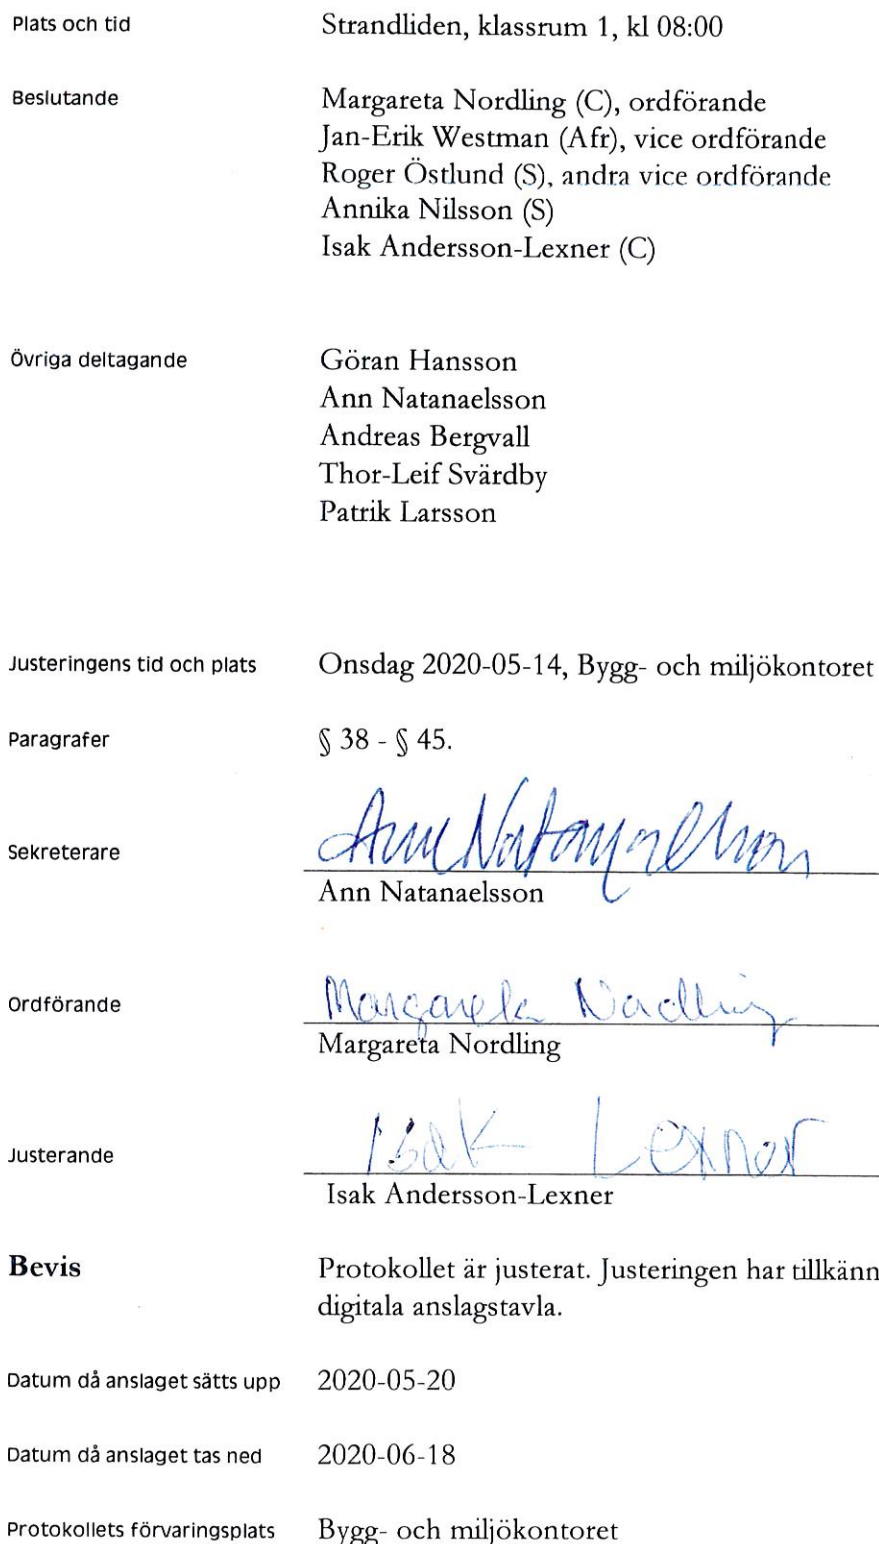 Plats och tid Strandliden, klassrum 1, kl 08:00
Beslutande Margareta Nordling (C), ordförande
Jan-Erik Westman (Afr), vice ordförande
Roger Östlund (S), andra vice ordförande
Annika Nilsson (S)
Isak Andersson-Lexner (C)
Övriga deltagande Göran Hansson
Ann Natanaelsson
Andreas Bergvall
Thor-Leif Svärdby
Patrik Larsson
Justeringens tid och plats Onsdag 2020-05-14, Bygg- och miljökontoret
Paragrafer § 38 - § 45.
Ann Natanaelsson
Sekreterare
Ann Natanaelsson
Ordförande Margareta Nordling
Margareta Nordling
Justerande Isak Lexner
Isak Andersson-Lexner
Bevis Protokollet är justerat. Justeringen har tillkänn
digitala anslagstavla.
Datum då anslaget sätts upp 2020-05-20
Datum då anslaget tas ned 2020-06-18
Protokollets förvaringsplats Bygg- och miljökontoret